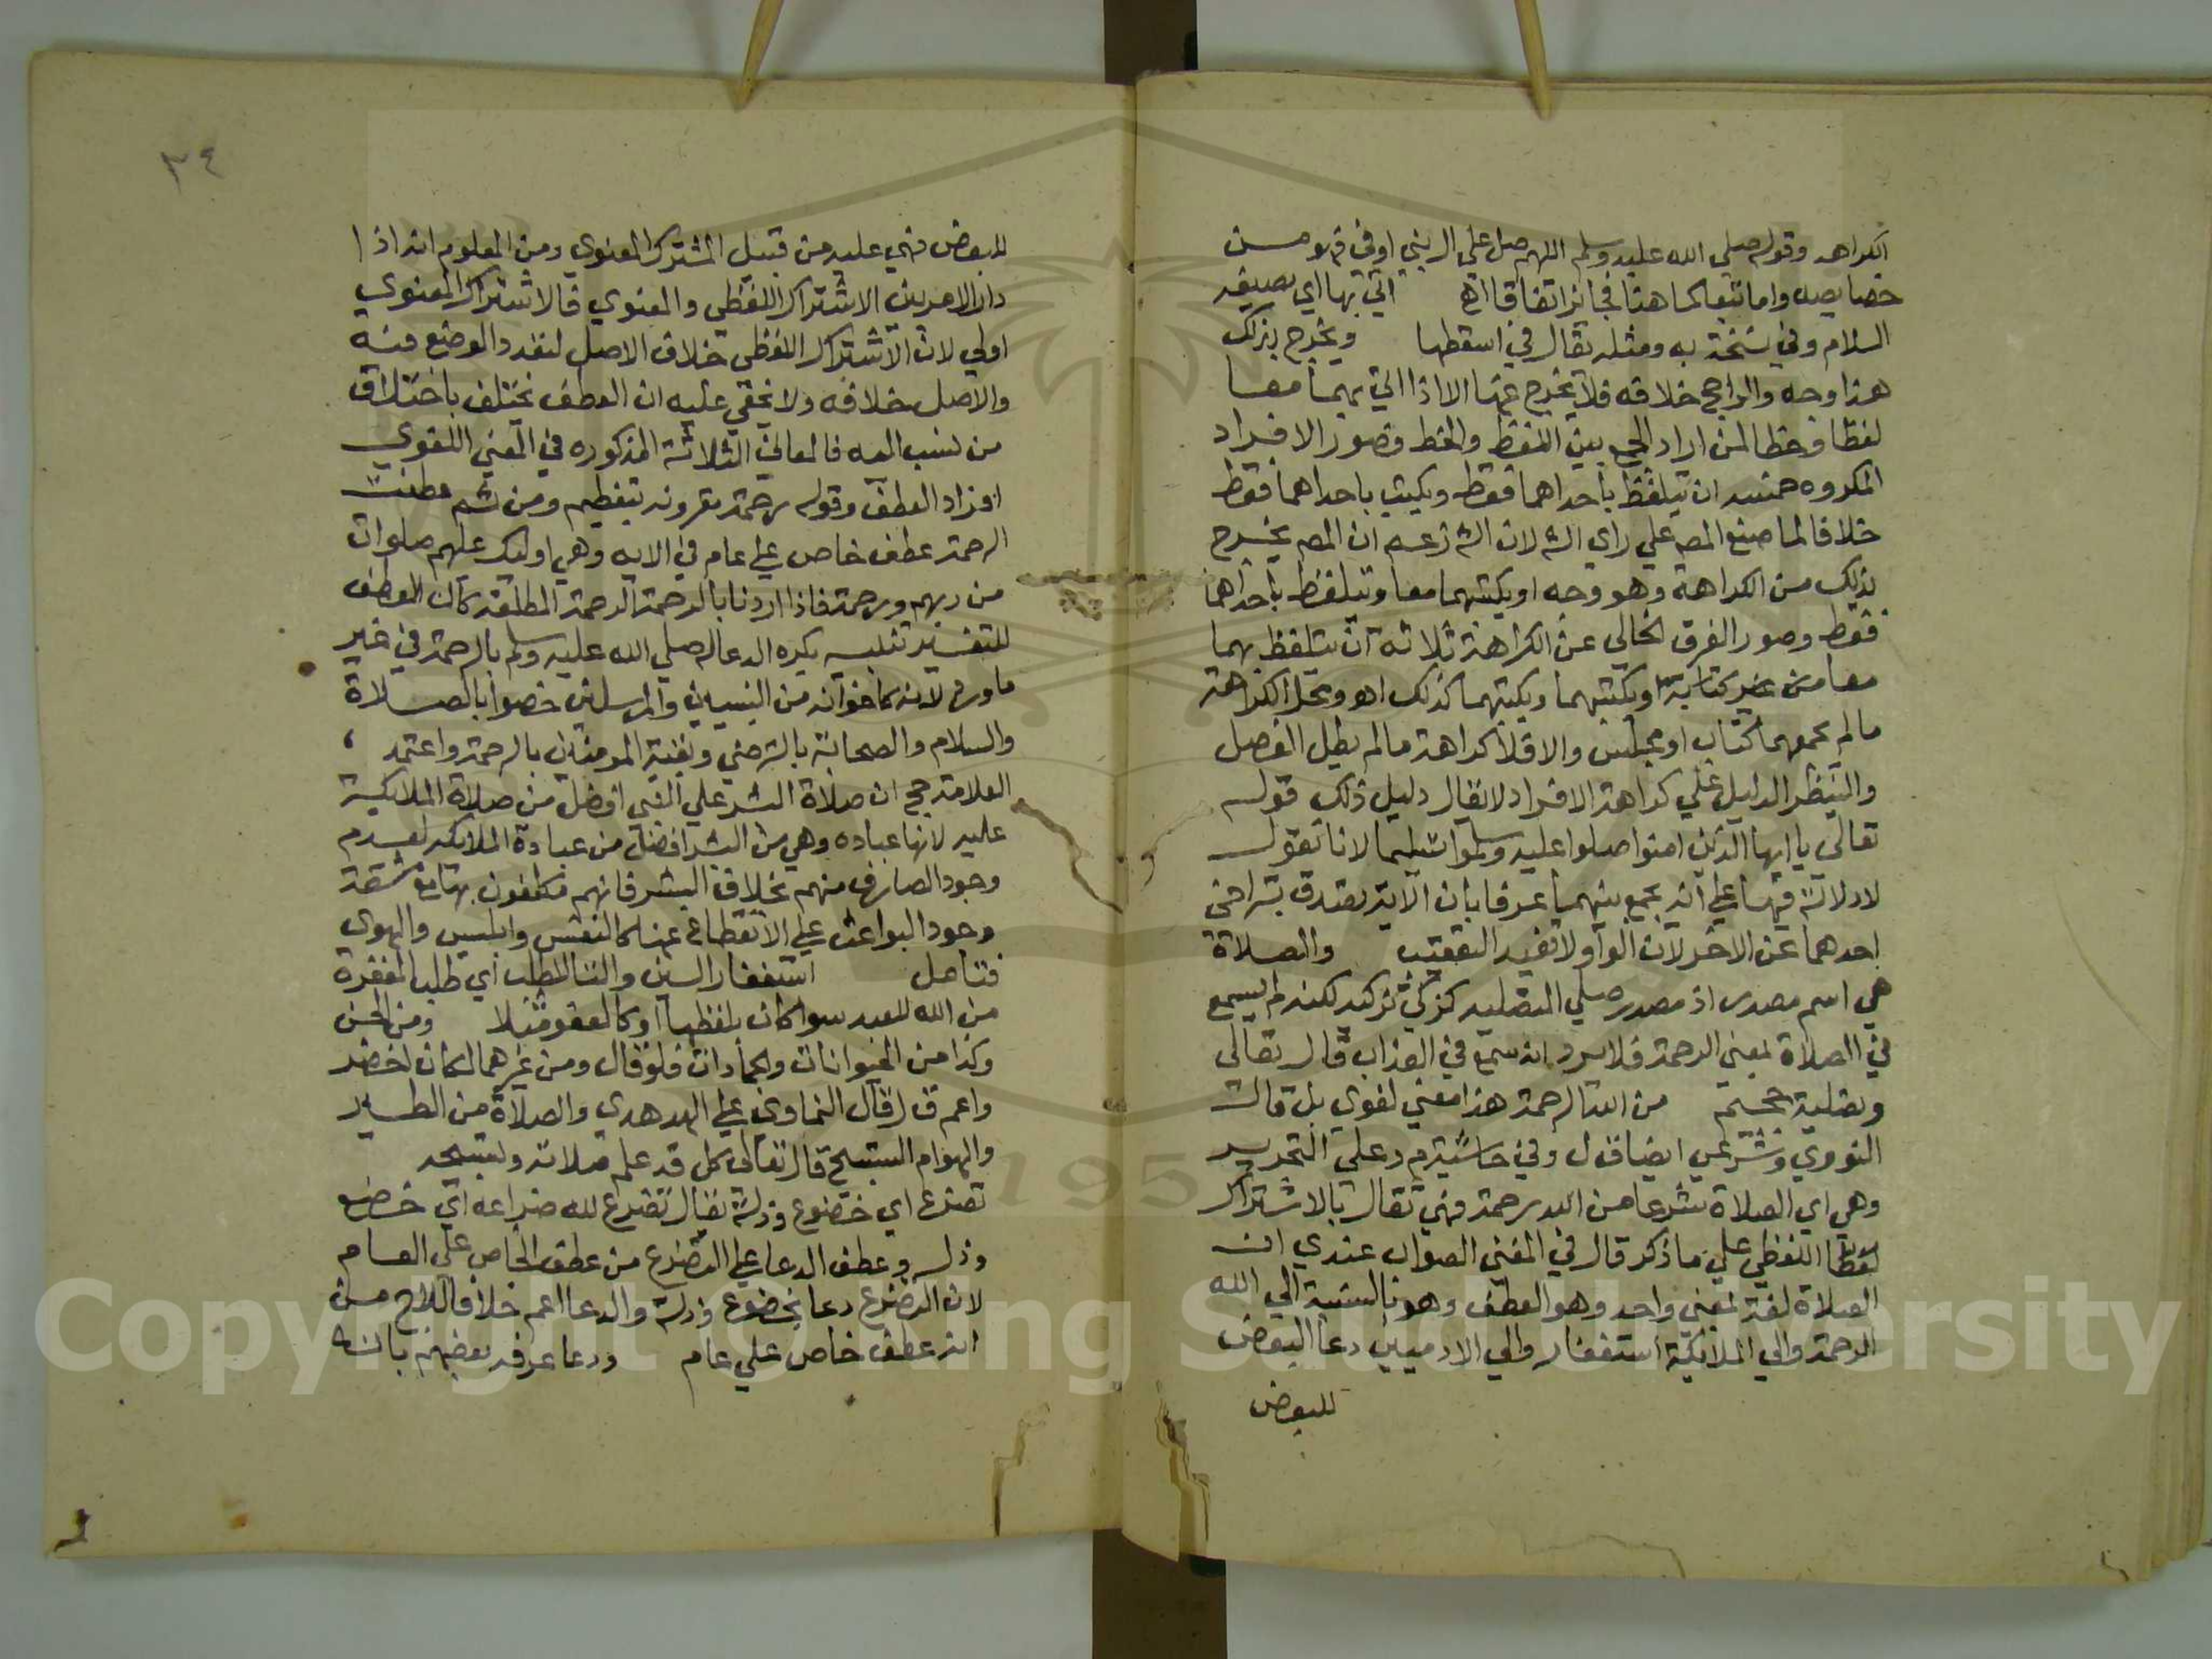 الكراهه وقوله صلى الله عليه وسلم اللهم صل على ال بني اوفى فهو من
خصايصه واما تبعا كما هنا فجائز اتفاقا اه اتى بها اي بصيغه
السلام وفي نسخة به ومثله يقال في اسقطها ويخرج بذلك
هذا وجه والراجح خلافه فلا يخرج عنها الا اذا اتى بهما معا
لفظا وخطا لمن اراد الجمع بين اللفظ والخط وصور الافراد
المكروه خمسه ان يتلفظ باحداهما فقط ويكتب باحداهما فقط
خلافا لما صنع المصـ علي راي الشـ لان الشـ زعم ان المصـ يخرج
بذلك من الكراهة وهو وجه او يكتبهما معا ويتلفظ باحداهما
فقط وصور الفرق الخالي عن الكراهة ثلاثة ان يتلفظ بهما
معا من غير كتابة او يكتبهما ويكتبهما كذلك اهو ومحل الكراهة
مالم يجمعهما كتاب او مجلس والا فلا كراهة مالم يطل الفصل
والنظر الدليل علي كراهة الافراد لا يقال دليل ذلك قوله
تعالى يا ايها الذين امنوا صلوا عليه وسلموا تسليما لانا نقول
لا دلالة فيها علي انه يجمع بينهما عرفا بان الاية تصدق بتراخي
احدهما عن الاخر لان الواو لا تفيد التعقيب والصلاة
هي اسم مصدر اذ مصدر صلي التصليه كزكي تزكيه لكنه لم يسمع
في الصلاة بمعني الرحمة فلا يرد انه سمع في العذاب قال تعالى
وتصلية جحيم من الله الرحمة هذا معني لغوي بل قال
النووي وشرعي ايضا ق ل وفي حاشية م د علي التحرير
وهي اي الصلاة شرعا من الله رحمة فهي تقال بالاشتراك
لفظا اللفظي علي ما ذكر قال في المغني الصواب عندي ان
الصلاة لغة بمعني واحد وهو العطف وهو بالنسبة الي الله
الرحمة والي الملائكة استغفار والي الادميين دعا البعض
للبعض
٣٤
للبعض فهي عليه من قبيل المشترك المعنوي ومن المعلوم انه اذا
دار الامر بين الاشتراك اللفظي والمعنوي فالاشتراك المعنوي
اولي لان الاشتراك اللفظي خلاف الاصل لتعدد الوضع فيه
والاصل خلافه ولا يخفي عليه ان العطف يختلف باختلاف
من نسب اليه فالمعاني الثلاثة المذكوره في المعني اللغوي
افراد العطف وقوله رحمة مقرونه بتعظيم ومن ثم عطفت
الرحمة عطف خاص علي عام في الايه وهي اولئك عليهم صلوات
من ربهم ورحمة فاذا اردنا بالرحمة الرحمة المطلقة كان العطف
للتفسير تنبيه يكره الدعا له صلي الله عليه وسلم بالرحمة في غير
ما ورد لانه كاخوانه من النبيين والمرسلين خصوا بالصلاة
والسلام والصحابة بالترضي وبقية المومنين بالرحمة واعتمد
العلامة حج ان صلاة البشر علي النبي افضل من صلاة الملائكة
عليه لانها عباده وهي من البشر افضل من عبادة الملائكه لعدم
وجود الصارف منهم بخلاف البشر فانهم مكلفون بها مع مشقة
وجود البواعث علي الانقطاع عنها كالنفس وابليس والهوى
فتامل استغفار السين والتا للطلب اي طلب المغفرة
من الله للعبد سوا كان بلفظها او كالعفو مثلا ومن الجن
وكذا من الحيوانات والجمادات فلو قال ومن غيرهما لكان اخصر
واعم ق ل قال النماوي علي الهدهدي والصلاة من الطير
والهوام التسبيح قال تعالى كل قد علم صلاته وتسبيحه
تضرع اي خضوع وذلة يقال تضرع لله ضراعه اي خضع
وذل وعطف الدعا علي التضرع من عطف الخاص علي العام
لان التضرع دعا بخضوع وذلة والدعا اعم خلافا لـ ا ج من
انه عطف خاص علي عام ودعا عرفه بعضهم بانه
Copyright © King Saud University
195